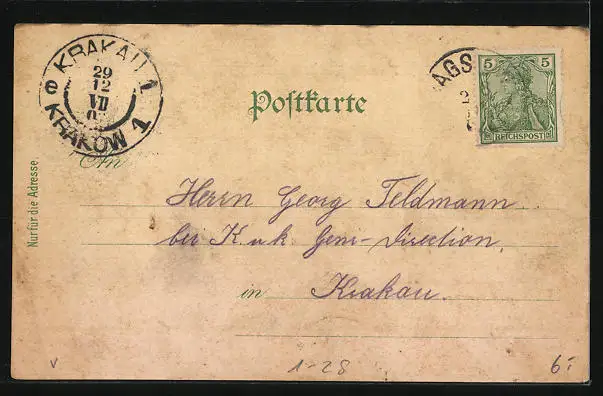 KRAKAU 1
29
12
VII
KRAKÓW 1
AGS
5 5
REICHSPOST
Postkarte
An
Nur für die Adresse.
Herrn Georg Feldmann
bei K. u. k. Genie-Direction,
in Krakau.
v
1-28
6: